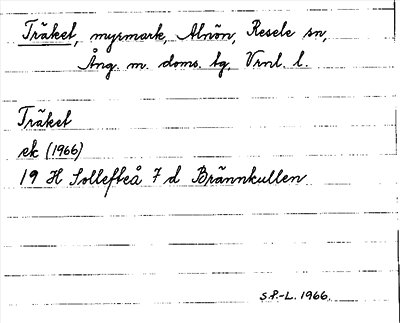 Träket, myrmark, Alnön, Resele sn,
Ång. m. doms. tg, Vrnl. l.
Träket
ek (1966)
19 H Sollefteå 7 d Brännkullen
S.P.-L. 1966